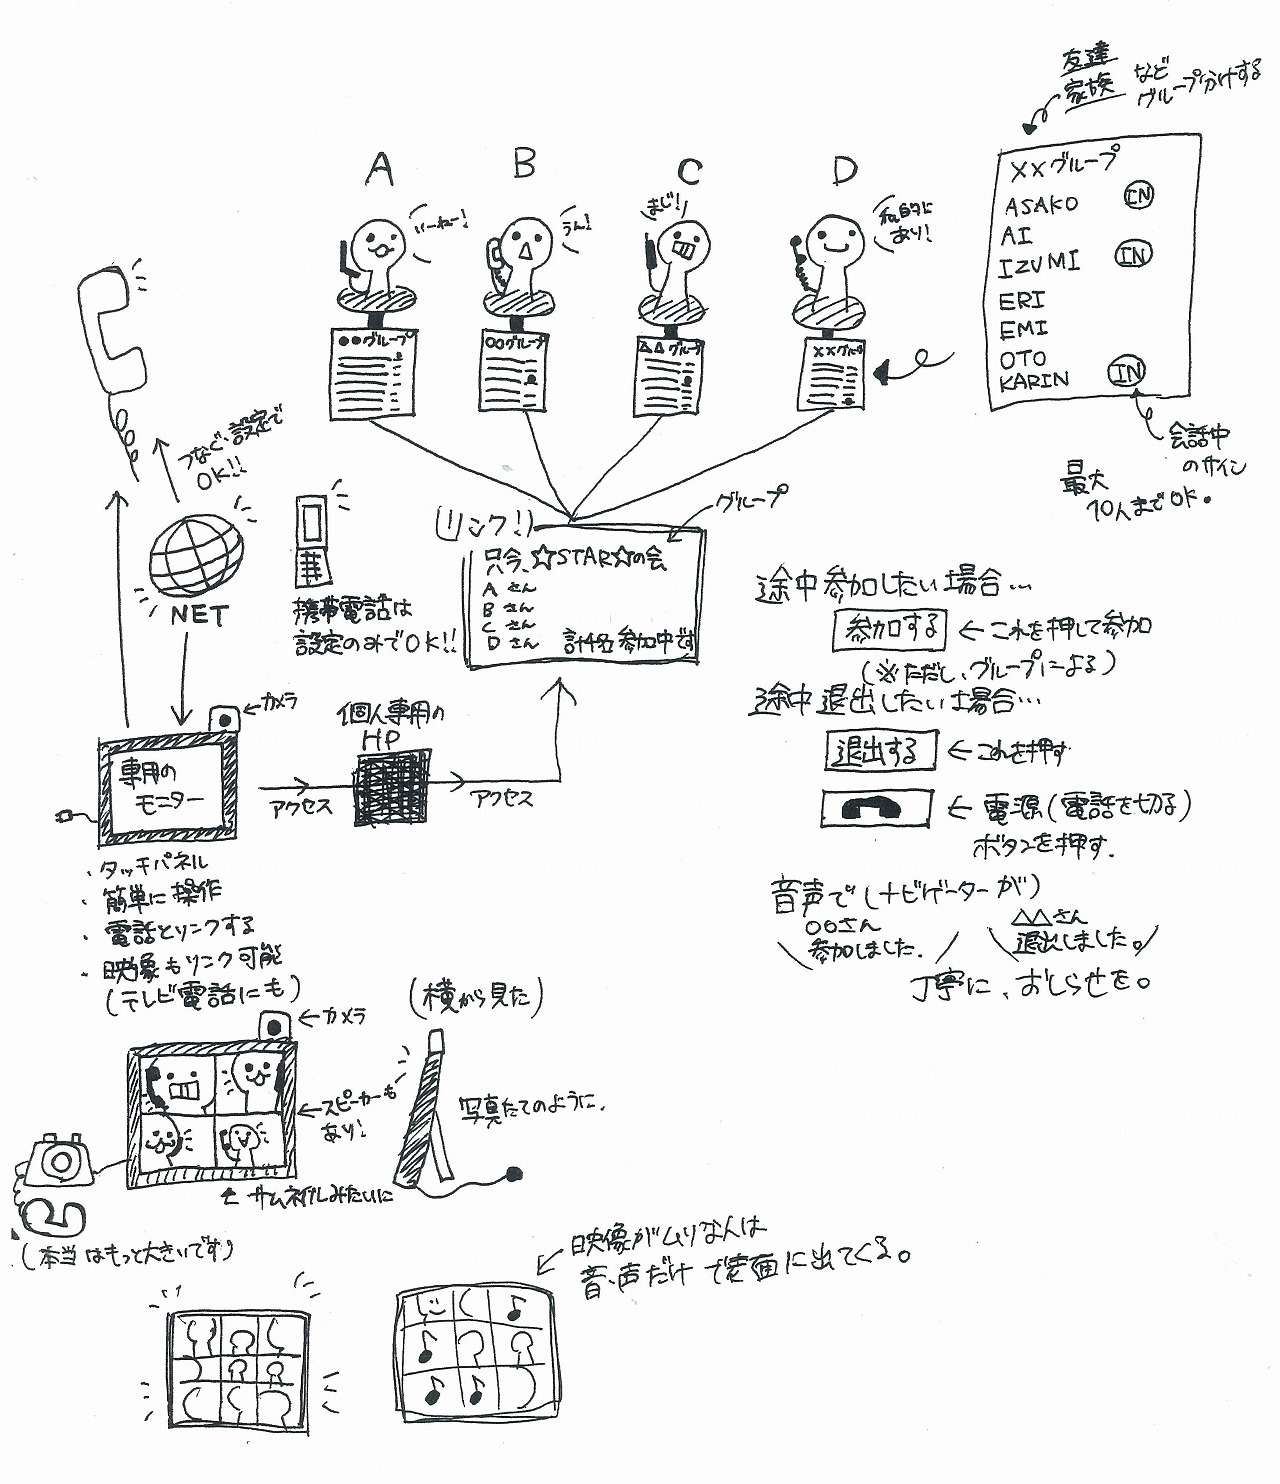 友達
家族
など
グループ分けする
××グループ
ASAKO IN
AI
IZUMI IN
ERI
EMI
OTO
KARIN IN
会話中
のサイン
最大
10人までOK。
A
B
C
D
いーねー!
うん!
まじ!
私的に
あり!
●●グループ
○○グループ
△△グループ
××グループ
つなぐ、設定で
OK!!
NET
携帯電話は
設定のみでOK!!
リンク!
グループ
只今、☆STAR☆の会
Aさん
Bさん
Cさん
Dさん
計4名 参加中です
カメラ
専用の
モニター
アクセス
個人専用の
HP
アクセス
・タッチパネル
・簡単に操作
・電話とリンクする
・映像もリンク可能
(テレビ電話にも)
途中参加したい場合…
参加する
←これを押して参加
(※ただし、グループによる)
途中退出したい場合…
退出する
←これを押す
←電源(電話を切る)
ボタンを押す.
音声で(ナビゲーターが)
○○さん
参加しました.
△△さん
退出しました。
丁寧に、おしらせを。
(横から見た)
←カメラ
←スピーカーも
あり!
写真たてのように.
サムネイルみたいに
(本当はもっと大きいです)
映像がムリな人は
音・声だけで画面に出てくる。